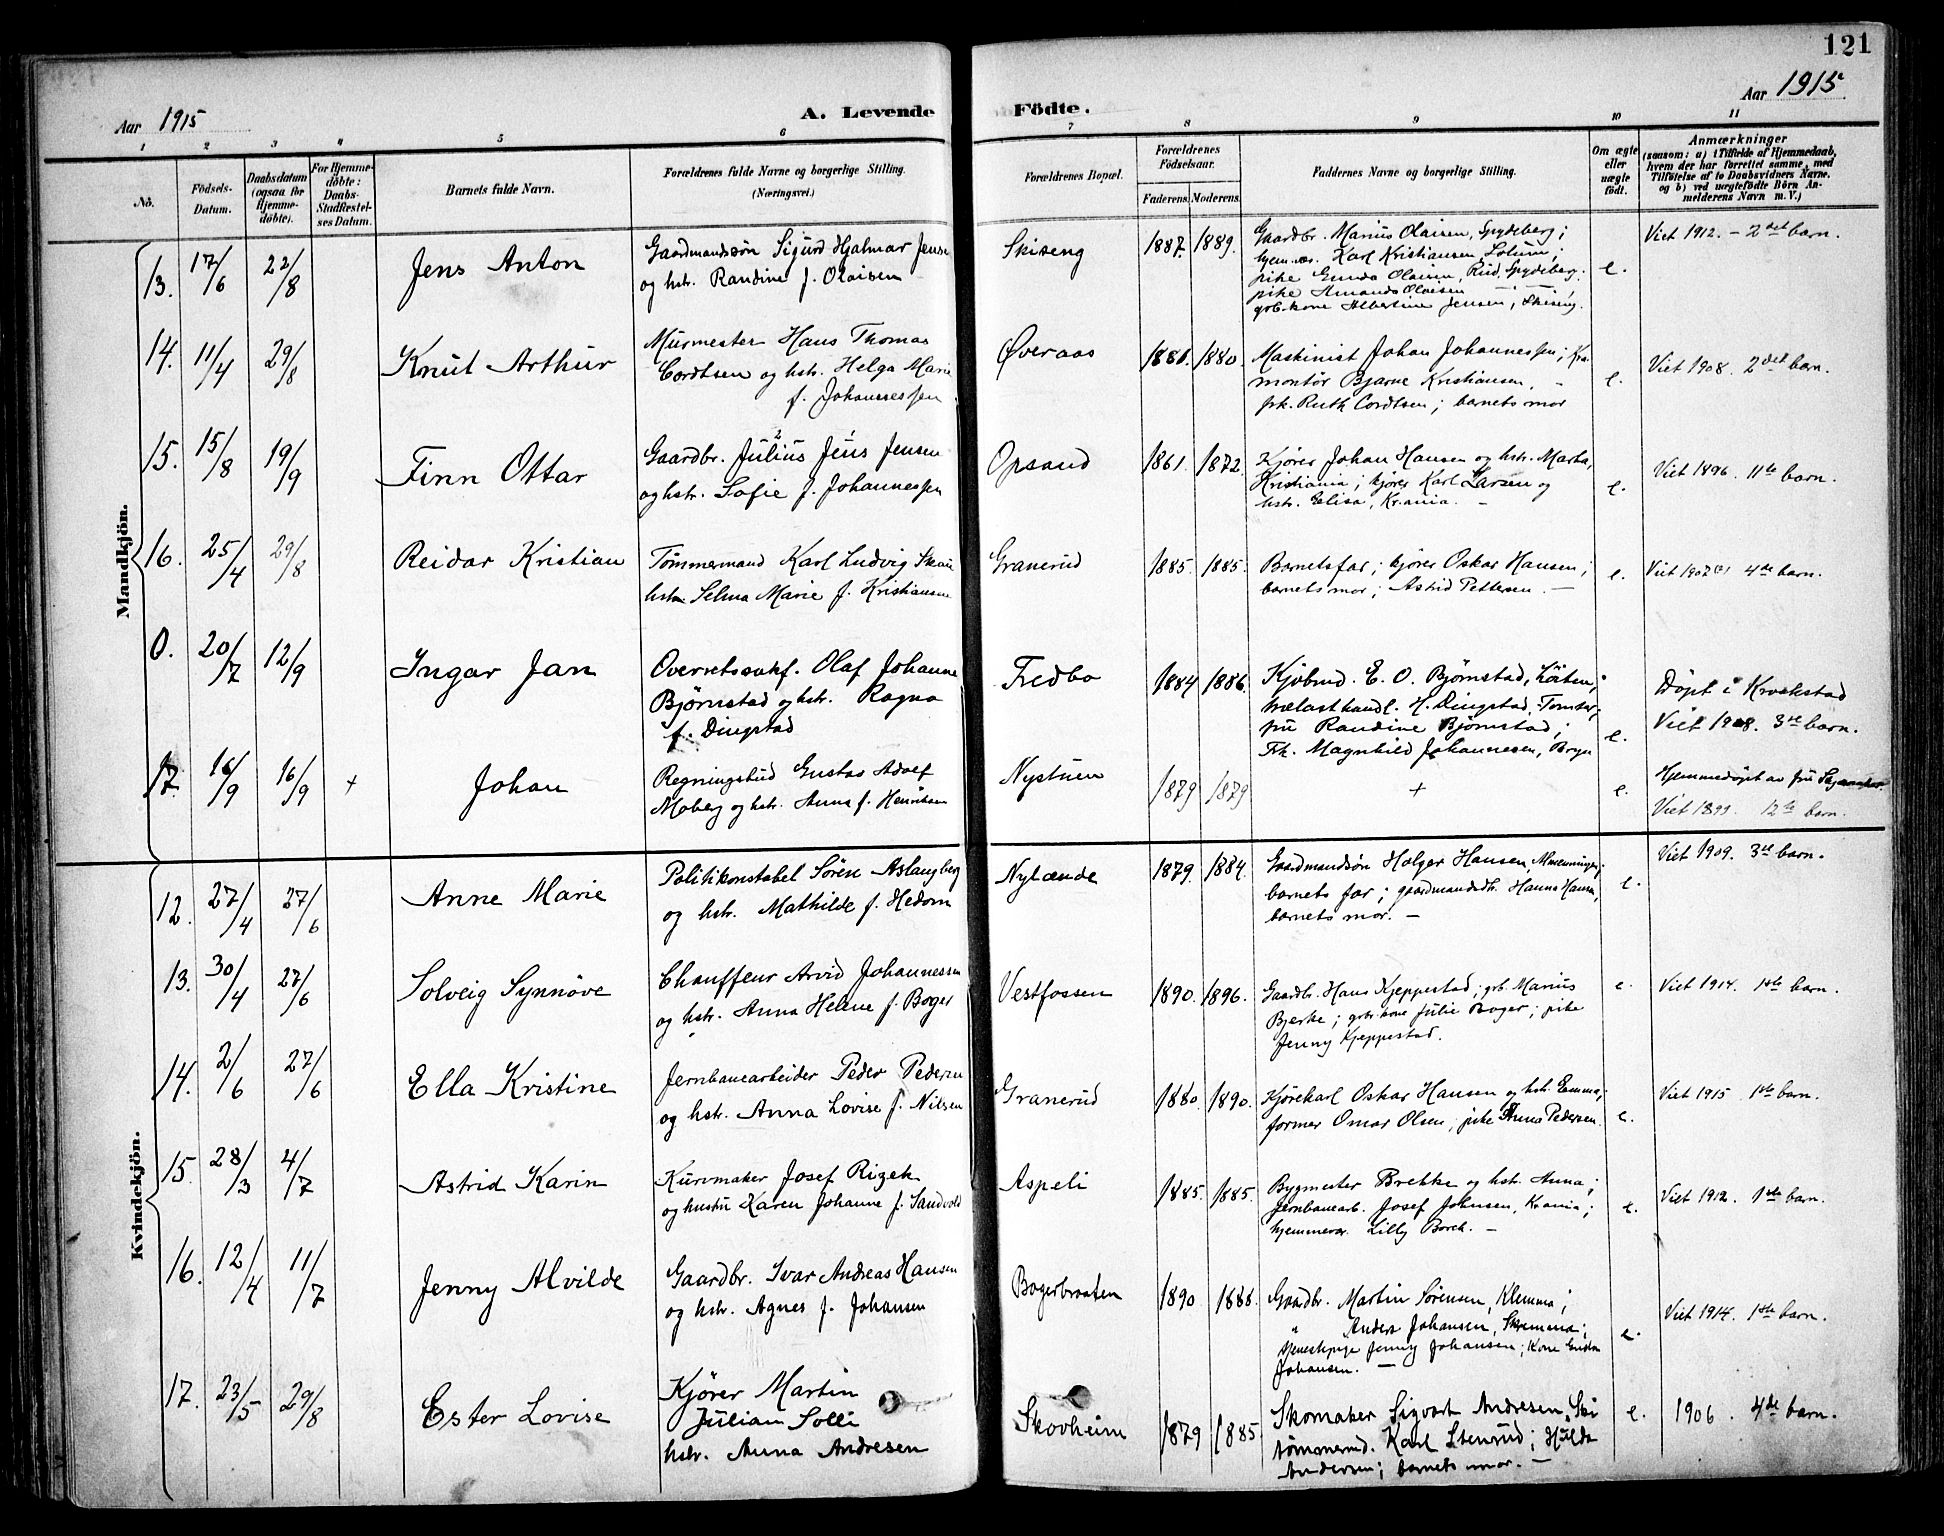 121
Aar 1915
Aar 1915
A. Levende
Födte.
1 2 3 4 5 6 7 8 9 10 11
No.
Födsels-
Datum.
Daabsdatum
(ogsaa for
Hjemme-
döbte).
For Hjemme-
döbte:
Daabs-
Stadfæstel-
ses Datum.
Barnets fulde Navn.
Forældrenes fulde Navne og borgerlige Stilling.
(Næringsvei.)
Forældrenes Bopæl.
Forældrenes
Födselsaar.
Faderens. Moderens.
Faddernes Navne og borgerlige Stilling.
Om ægte
eller
uægte
födt.
Anmærkninger
(saasom: a) i Tilfælde af Hjemmedaab,
hvem der har forrettet samme, med
Tilföielse af to Daabsvidners Navne.
og b) ved uægtefödte Börn An-
melderens Navn m. V.)
Mandkjön.
13. 17/6 22/8 Jens Anton
Gaardmandssøn Sigurd Hjalmar Jensen
og hstr. Randine f. Olaisen
Skiseng 1887. 1889.
Gaardbr. Marius Olaisen, Spydeberg;
hjem.væ. Karl Kristiansen,
pike Gunda Olaisen, Rud, Spydeberg.
pike Amanda Olaisen
grb.kone Albertine Jensen, Skiseng.
e.
Viet 1912. - 2det barn.
14. 11/4 29/8 Knut Arthur
Murmester Hans Thomas
Cordtsen og hstr. Helga Marie
f. Johannessen
Øveraas 1881. 1880.
Maskinist Johan Johannessen; Kra.
montør Bjarne Kristiansen, -
frk. Ruth Cordtsen; barnets mor
e.
Viet 1908. 2det barn.
15. 15/8 19/9 Finn Ottar
Gaardbr. Julius Jens Jensen
og hstr. Sofie f. Johannessen
Opsand 1861. 1872.
Kjører Johan Hansen og hstr. Marta,
Kristiania; kjører Karl Larsen og
hstr. Elisa, Krania. -
e.
Viet 1896. 11te barn.
16. 25/4 29/8 Reidar Kristian
Tømmermand Karl Ludvig Skau
hstr. Selma Marie f. Kristiansen
Granerud 1885. 1885.
Barnets far; kjører Oskar Hansen;
barnets mor; Astrid Pettersen. -
e.
Viet 1907(?) 4de barn.
0. 20/7 12/9 Ingar Jan
Overretssakf. Olaf Johannes
Bjørnstad og hstr. Ragna
f. Dingstad
Fredbo 1884 1886.
Kjøbmd. E. O. Bjørnstad, Löiten;
trælasthandl. H. Dingstad,
fru Randine Bjørnstad;
Frk. Magnhild Johannesen, Bryn
e.
Døpt i Kroekstad
Viet 1908. 3de barn.
17. 16/9 16/9 + Johan
Regningsbud Gustav Adolf
Moberg og hstr. Anna f. Henriksen
Nystuen 1879 1879 +
e.
Hjemmedøpt av fru
Viet 1899. 12te barn.
Kvindekjön.
12. 27/4 27/6 Anne Marie
Politikonstabel Sören Aslangberg
og hstr. Mathilde f. Hedom
Nylænde 1879. 1884.
Gaardmandsøn Holger Hansen,
barnets far; gaardmandsdtr. Hanna Hansen,
barnets mor. -
e.
Viet 1909. 3de barn.
13. 30/4 27/6 Solveig Synnöve
Chauffeur Arvid Johannessen
og hstr. Anna Helene f. Boger
Vestfossen 1890. 1896.
Gaardbr. Hans Kjeppestad; grb. Marius
Bjerke; grbr.kone Julie Boger; pike
Jenny Kjeppestad.
e.
Viet 1914. 1ste barn.
14. 2/6 27/6 Ella Kristine
Jernbanearbeider Peder Pedersen
og hstr. Anna Lovise f. Nilsen
Granerud 1880. 1890.
Kjørekarl Oskar Hansen og hstr. Emma;
former Omar Olsen, pike Anna Pedersen.
e.
Viet 1915. 1ste barn.
15. 28/3 4/7 Astrid Karin
Kurvmaker Josef Rizek
og hustru Karen Johanne f. Sandvold
Aspeli 1885. 1885.
Bygmester Brekke og hstr. Anna;
Jernbanearb. Josef Johnsen, Krania;
hjemmevær. Lilly Borch. -
e.
Viet 1912. 1ste barn.
16. 12/4 11/7 Jenny Alvilde
Gaardbr. Ivar Andreas Hansen
og hstr. Agnes f. Johansen
Bogerbraaten 1890 1888.
Gaardbr. Martin Sørensen, Klemma;
" Anders Johansen, Skremma;
tjenestepige Jenny Johansen; Kone
Johansen. -
e.
Viet 1914. 1ste barn.
17. 23/5 29/8 Ester Lovise
Kjører Martin
Julian Solli
hstr. Anna Andresen
Skovheim 1879 1885.
Skomaker Sigvart Andresen, Ski
tømmermd. Karl Stenrud; Hulda
Andersen; barnets mor. -
e.
1906. 4de barn.